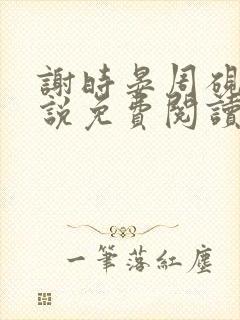 謝時晏周硯
說免費閱讀
一筆落紅塵